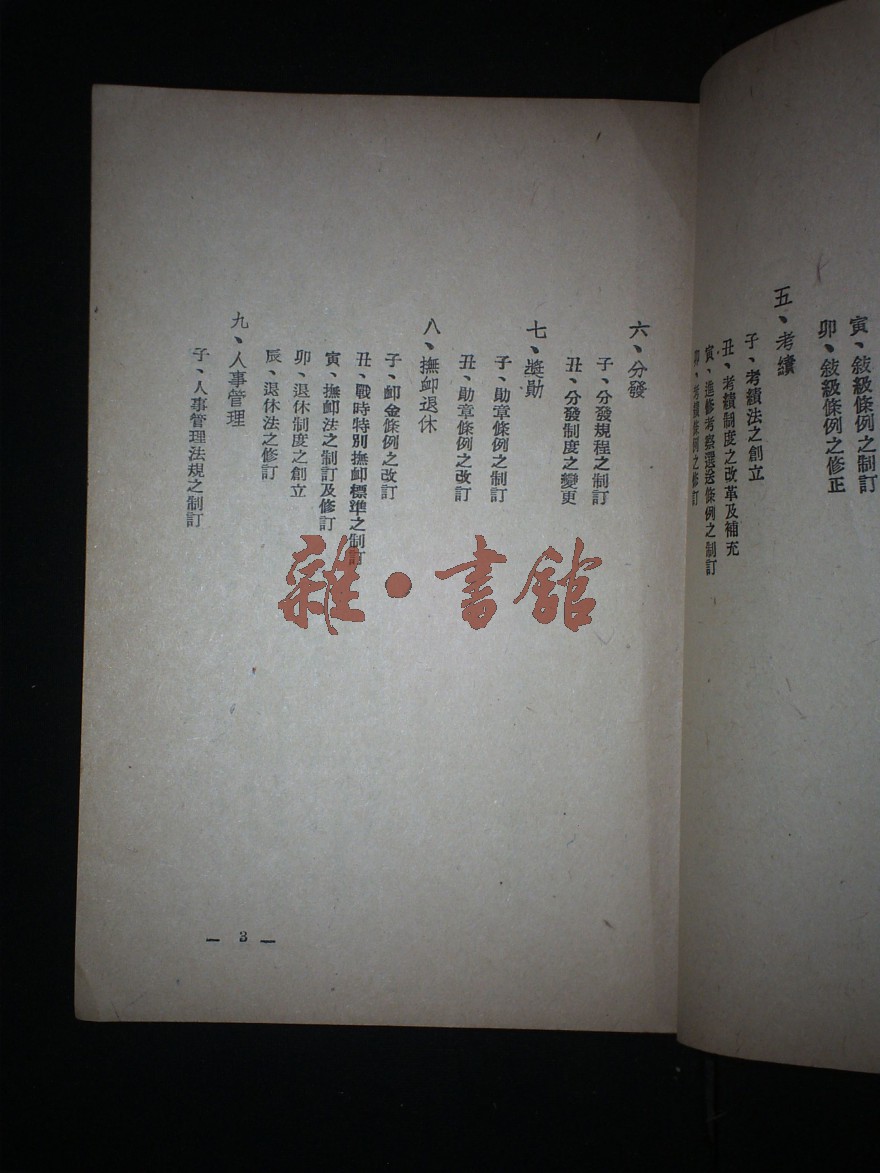 寅、敍級條例之制訂
卯、敍級條例之修正
五、考績
子、考績法之創立
丑、考績制度之改革及補充
寅、進修考察選送條例之制訂
卯、考績條例之修訂
六、分發
子、分發規程之制訂
丑、分發制度之變更
七、獎勛
子、勛章條例之制訂
丑、勛章條例之改訂
八、撫卹退休
子、卹金條例之改訂
丑、戰時特別撫卹標準之制訂
寅、撫卹法之制訂及修訂
卯、退休制度之創立
辰、退休法之修訂
九、人事管理
子、人事管理法規之制訂
— 3 —
雜·書館